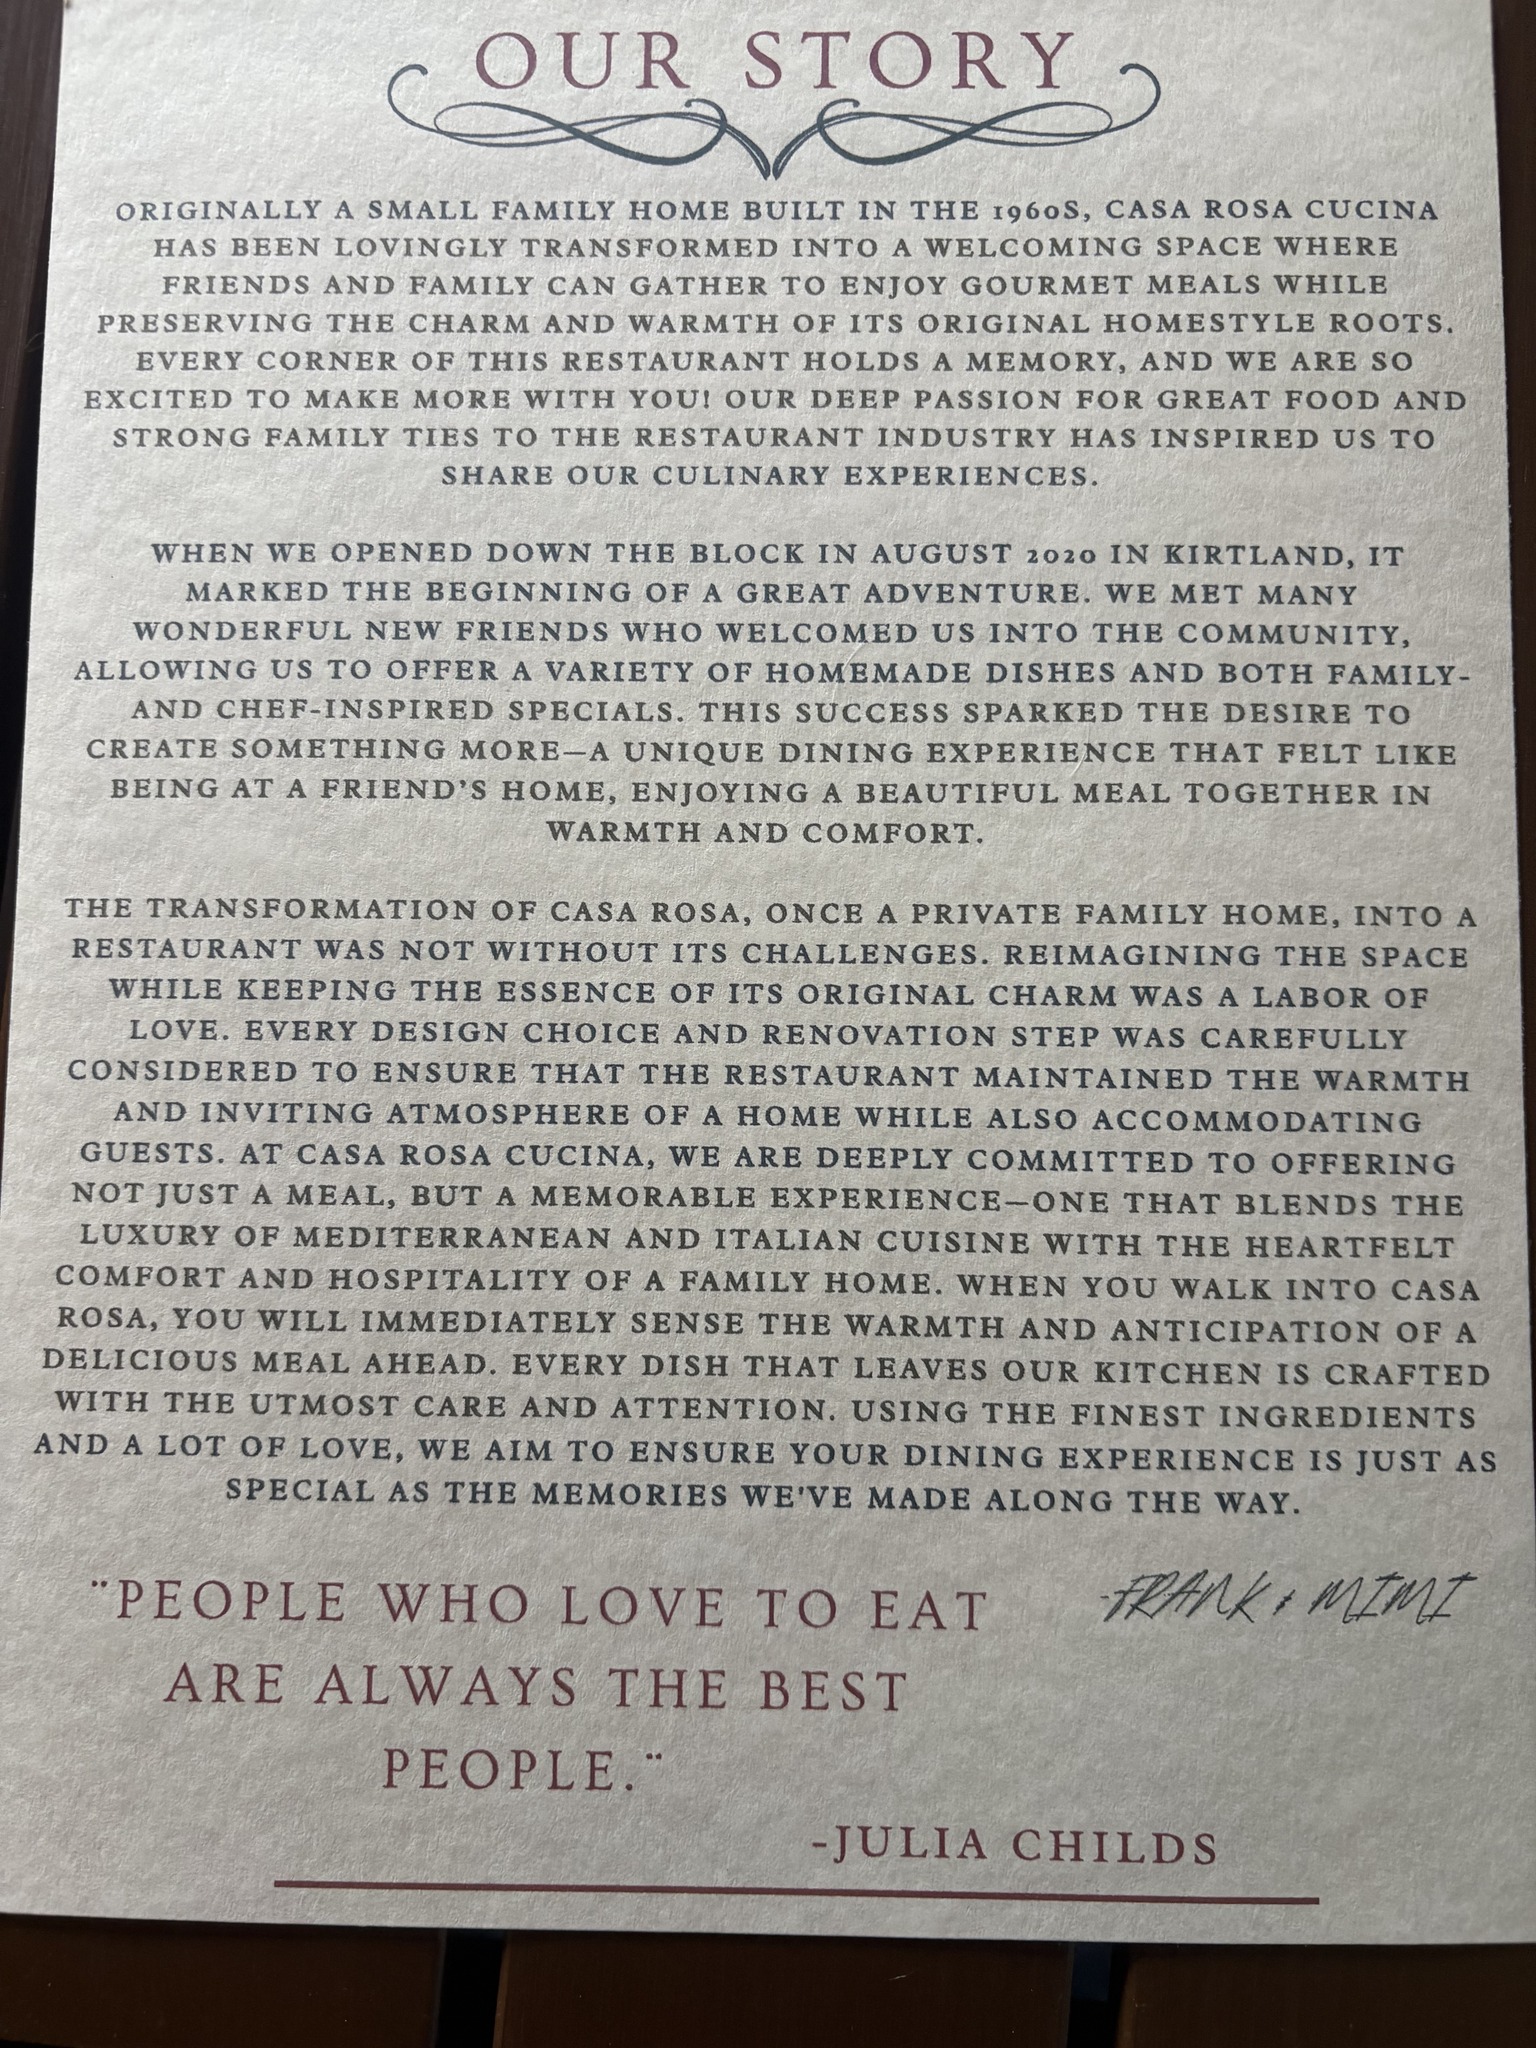 OUR STORY
ORIGINALLY A SMALL FAMILY HOME BUILT IN THE 1960S, CASA ROSA CUCINA
HAS BEEN LOVINGLY TRANSFORMED INTO A WELCOMING SPACE WHERE
FRIENDS AND FAMILY CAN GATHER TO ENJOY GOURMET MEALS WHILE
PRESERVING THE CHARM AND WARMTH OF ITS ORIGINAL HOMESTYLE ROOTS.
EVERY CORNER OF THIS RESTAURANT HOLDS A MEMORY, AND WE ARE SO
EXCITED TO MAKE MORE WITH YOU! OUR DEEP PASSION FOR GREAT FOOD AND
STRONG FAMILY TIES TO THE RESTAURANT INDUSTRY HAS INSPIRED US TO
SHARE OUR CULINARY EXPERIENCES.
WHEN WE OPENED DOWN THE BLOCK IN AUGUST 2020 IN KIRTLAND, IT
MARKED THE BEGINNING OF A GREAT ADVENTURE. WE MET MANY
WONDERFUL NEW FRIENDS WHO WELCOMED US INTO THE COMMUNITY,
ALLOWING US TO OFFER A VARIETY OF HOMEMADE DISHES AND BOTH FAMILY-
AND CHEF-INSPIRED SPECIALS. THIS SUCCESS SPARKED THE DESIRE TO
CREATE SOMETHING MORE—A UNIQUE DINING EXPERIENCE THAT FELT LIKE
BEING AT A FRIEND'S HOME, ENJOYING A BEAUTIFUL MEAL TOGETHER IN
WARMTH AND COMFORT.
THE TRANSFORMATION OF CASA ROSA, ONCE A PRIVATE FAMILY HOME, INTO A
RESTAURANT WAS NOT WITHOUT ITS CHALLENGES. REIMAGINING THE SPACE
WHILE KEEPING THE ESSENCE OF ITS ORIGINAL CHARM WAS A LABOR OF
LOVE. EVERY DESIGN CHOICE AND RENOVATION STEP WAS CAREFULLY
CONSIDERED TO ENSURE THAT THE RESTAURANT MAINTAINED THE WARMTH
AND INVITING ATMOSPHERE OF A HOME WHILE ALSO ACCOMMODATING
GUESTS. AT CASA ROSA CUCINA, WE ARE DEEPLY COMMITTED TO OFFERING
NOT JUST A MEAL, BUT A MEMORABLE EXPERIENCE—ONE THAT BLENDS THE
LUXURY OF MEDITERRANEAN AND ITALIAN CUISINE WITH THE HEARTFELT
COMFORT AND HOSPITALITY OF A FAMILY HOME. WHEN YOU WALK INTO CASA
ROSA, YOU WILL IMMEDIATELY SENSE THE WARMTH AND ANTICIPATION OF A
DELICIOUS MEAL AHEAD. EVERY DISH THAT LEAVES OUR KITCHEN IS CRAFTED
WITH THE UTMOST CARE AND ATTENTION. USING THE FINEST INGREDIENTS
AND A LOT OF LOVE, WE AIM TO ENSURE YOUR DINING EXPERIENCE IS JUST AS
SPECIAL AS THE MEMORIES WE'VE MADE ALONG THE WAY.
-FRANK & MIMI
¨PEOPLE WHO LOVE TO EAT
ARE ALWAYS THE BEST
PEOPLE.¨
-JULIA CHILDS